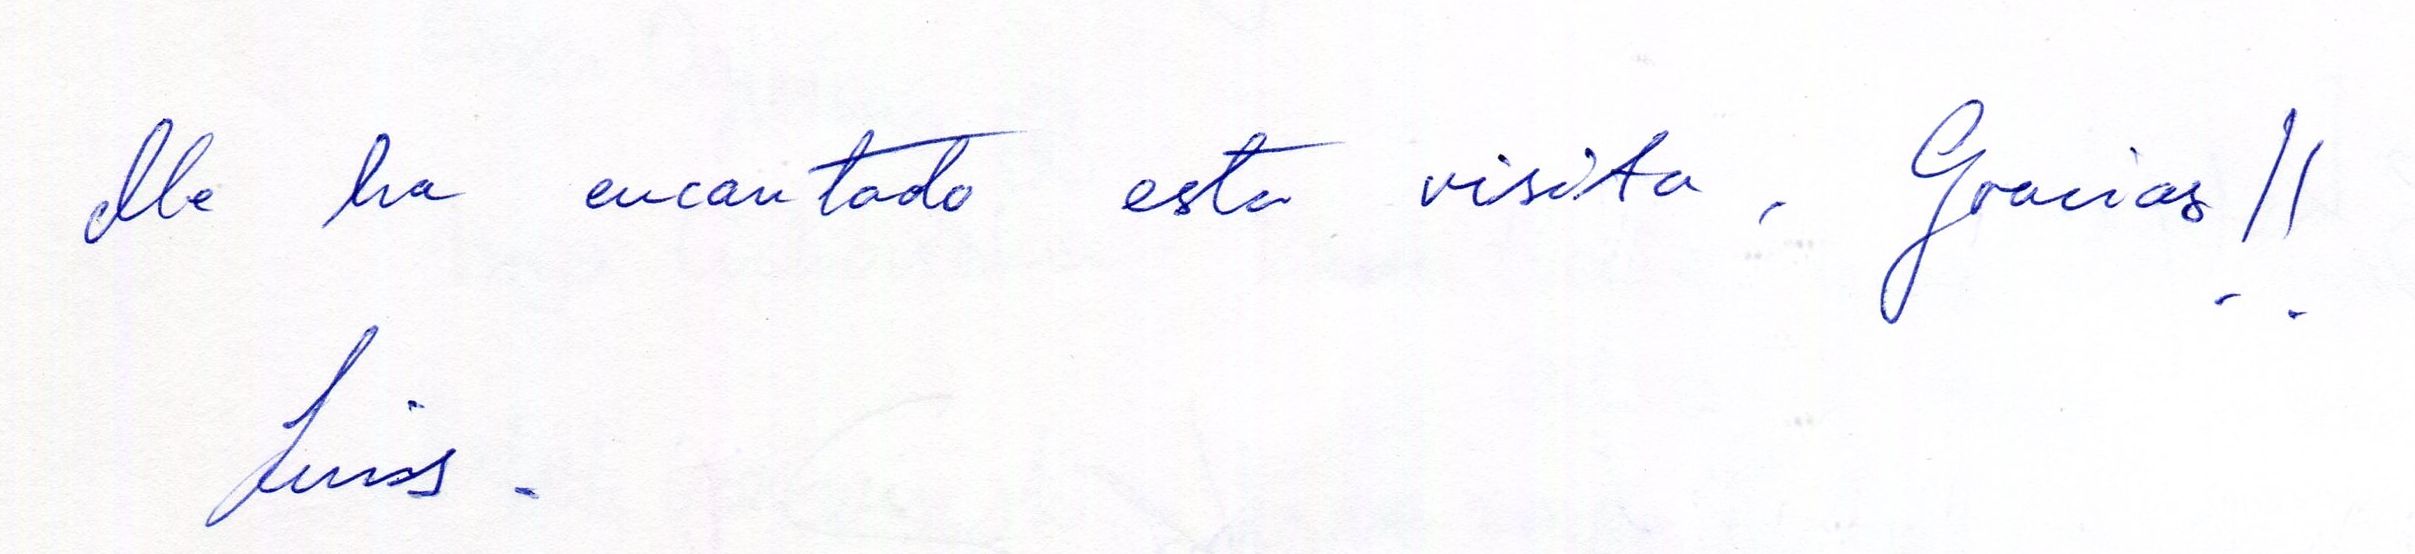 Me ha encantado esta visita. Gracias!!
Luis.